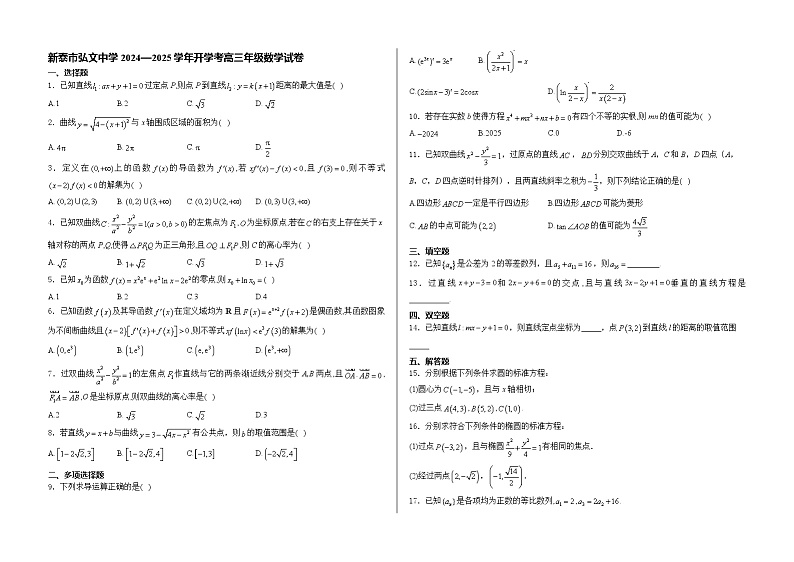 新泰市弘文中学 2024—2025 学年开学考高三年级数学试卷
一、选择题
1．已知直线l₁: ax+y+1=0过定点 P,则点 P 到直线l₂: y=k(x+1)距离的最大值是( )
A.1 B.2 C.√3 D.√2
2．曲线y=√(4-(x+1)²)与 x 轴围成区域的面积为( )
A.4π B.2π C.π D.π/2
3．定义在(0,+∞)上的函数 f(x)的导函数为 f′(x),若 xf′(x)-f(x)<0,且 f(3)=0,则不等式
(x-2)f(x)<0的解集为( )
A.(0,2)∪(2,3) B.(0,2)∪(3,+∞) C.(0,2)∪(2,+∞) D.(0,3)∪(3,+∞)
4．已知双曲线C: x²/a²-y²/b²=1(a>0,b>0)的左焦点为F₁,O为坐标原点,若在C的右支上存在关于 x
轴对称的两点 P,Q,使得△PF₁Q为正三角形,且OQ⊥F₁P,则 C 的离心率为( )
A.√2 B.1+√2 C.√3 D.1+√3
5．已知x₀为函数f(x)=x²eˣ+e²lnx-2e²的零点,则x₀+lnx₀=( )
A.1 B.2 C.3 D.4
6．已知函数f(x)及其导函数f′(x)在定义域均为 R且F(x)=eˣ⁺²f(x+2)是偶函数,其函数图象
为不间断曲线且(x-2)[f′(x)+f(x)]>0,则不等式xf(lnx)<e³f(3)的解集为( )
A.(0,e³) B.(1,e³) C.(e,e³) D.(e³,+∞)
7．过双曲线x²/a²-y²/b²=1的左焦点F₁作直线与它的两条渐近线分别交于 A,B 两点,且OA·AB=0,
F₁A=AB,O 是坐标原点,则双曲线的离心率是( )
A.2 B.√3 C.√2 D.3
8．若直线y=x+b与曲线y=3-√(4x-x²)有公共点，则b的取值范围是( )
A.[1-2√2,3] B.[1-2√2,4] C.[-1,3] D.[-2√2,4]
二、多项选择题
9．下列求导运算正确的是( )
A.(e³ˣ)′=3eˣ B.(x²/(2x+1))′=x
C.(2sinx-3)′=2cosx D.(ln x/(2-x))′=2/(x(2-x))
10．若存在实数 b 使得方程x⁴+mx³+nx+b=0有四个不等的实根,则 mn的值可能为( )
A.-2024 B.2025 C.0 D.-6
11．已知双曲线x²-y²/3=1，过原点的直线AC，BD分别交双曲线于 A，C 和 B，D 四点（A，
B，C，D 四点逆时针排列），且两直线斜率之积为-1/3，则下列结论正确的是( )
A.四边形ABCD一定是平行四边形 B.四边形ABCD可能为菱形
C.AB的中点可能为(2,2) D.tan∠AOB的值可能为4√3/3
三、填空题
12．已知{aₙ}是公差为 2 的等差数列，且a₅+a₁₁=16，则a₁₆=________
13．过直线x+y-3=0和2x-y+6=0的交点,且与直线3x-2y+1=0垂直的直线方程是
________.
四、双空题
14．已知直线l: mx-y+1=0，则直线定点坐标为_____，点P(3,2)到直线 l 的距离的取值范围
_____
五、解答题
15．分别根据下列条件求圆的标准方程:
(1)圆心为C(-1,-5)，且与 x 轴相切:
(2)过三点A(4,3),B(5,2),C(1,0).
16．分别求符合下列条件的椭圆的标准方程:
(1)过点P(-3,2)，且与椭圆x²/9+y²/4=1有相同的焦点.
(2)经过两点(2,-√2)，(-1,√14/2).
17．已知{aₙ}是各项均为正数的等比数列,a₁=2,a₃=2a₂+16.